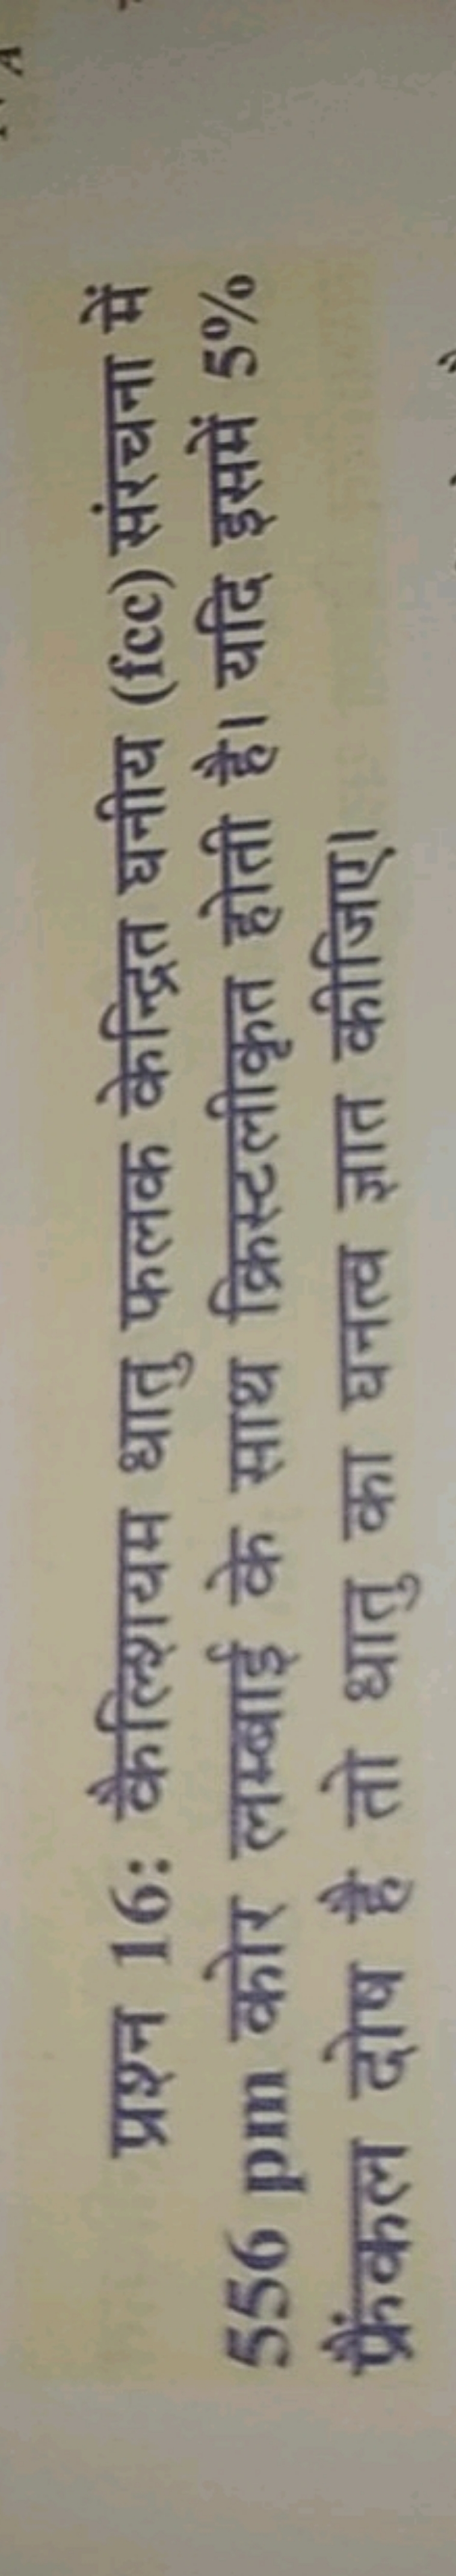 प्रश्न 16: कैल्शियम धातु फलक केन्द्रित घनीय (fcc) संरचना में
556 pm कोर लम्बाई के साथ क्रिस्टलीकृत होती है। यदि इसमें 5%
फ्रैंकल दोष हैं तो धातु का घनत्व ज्ञात कीजिए।